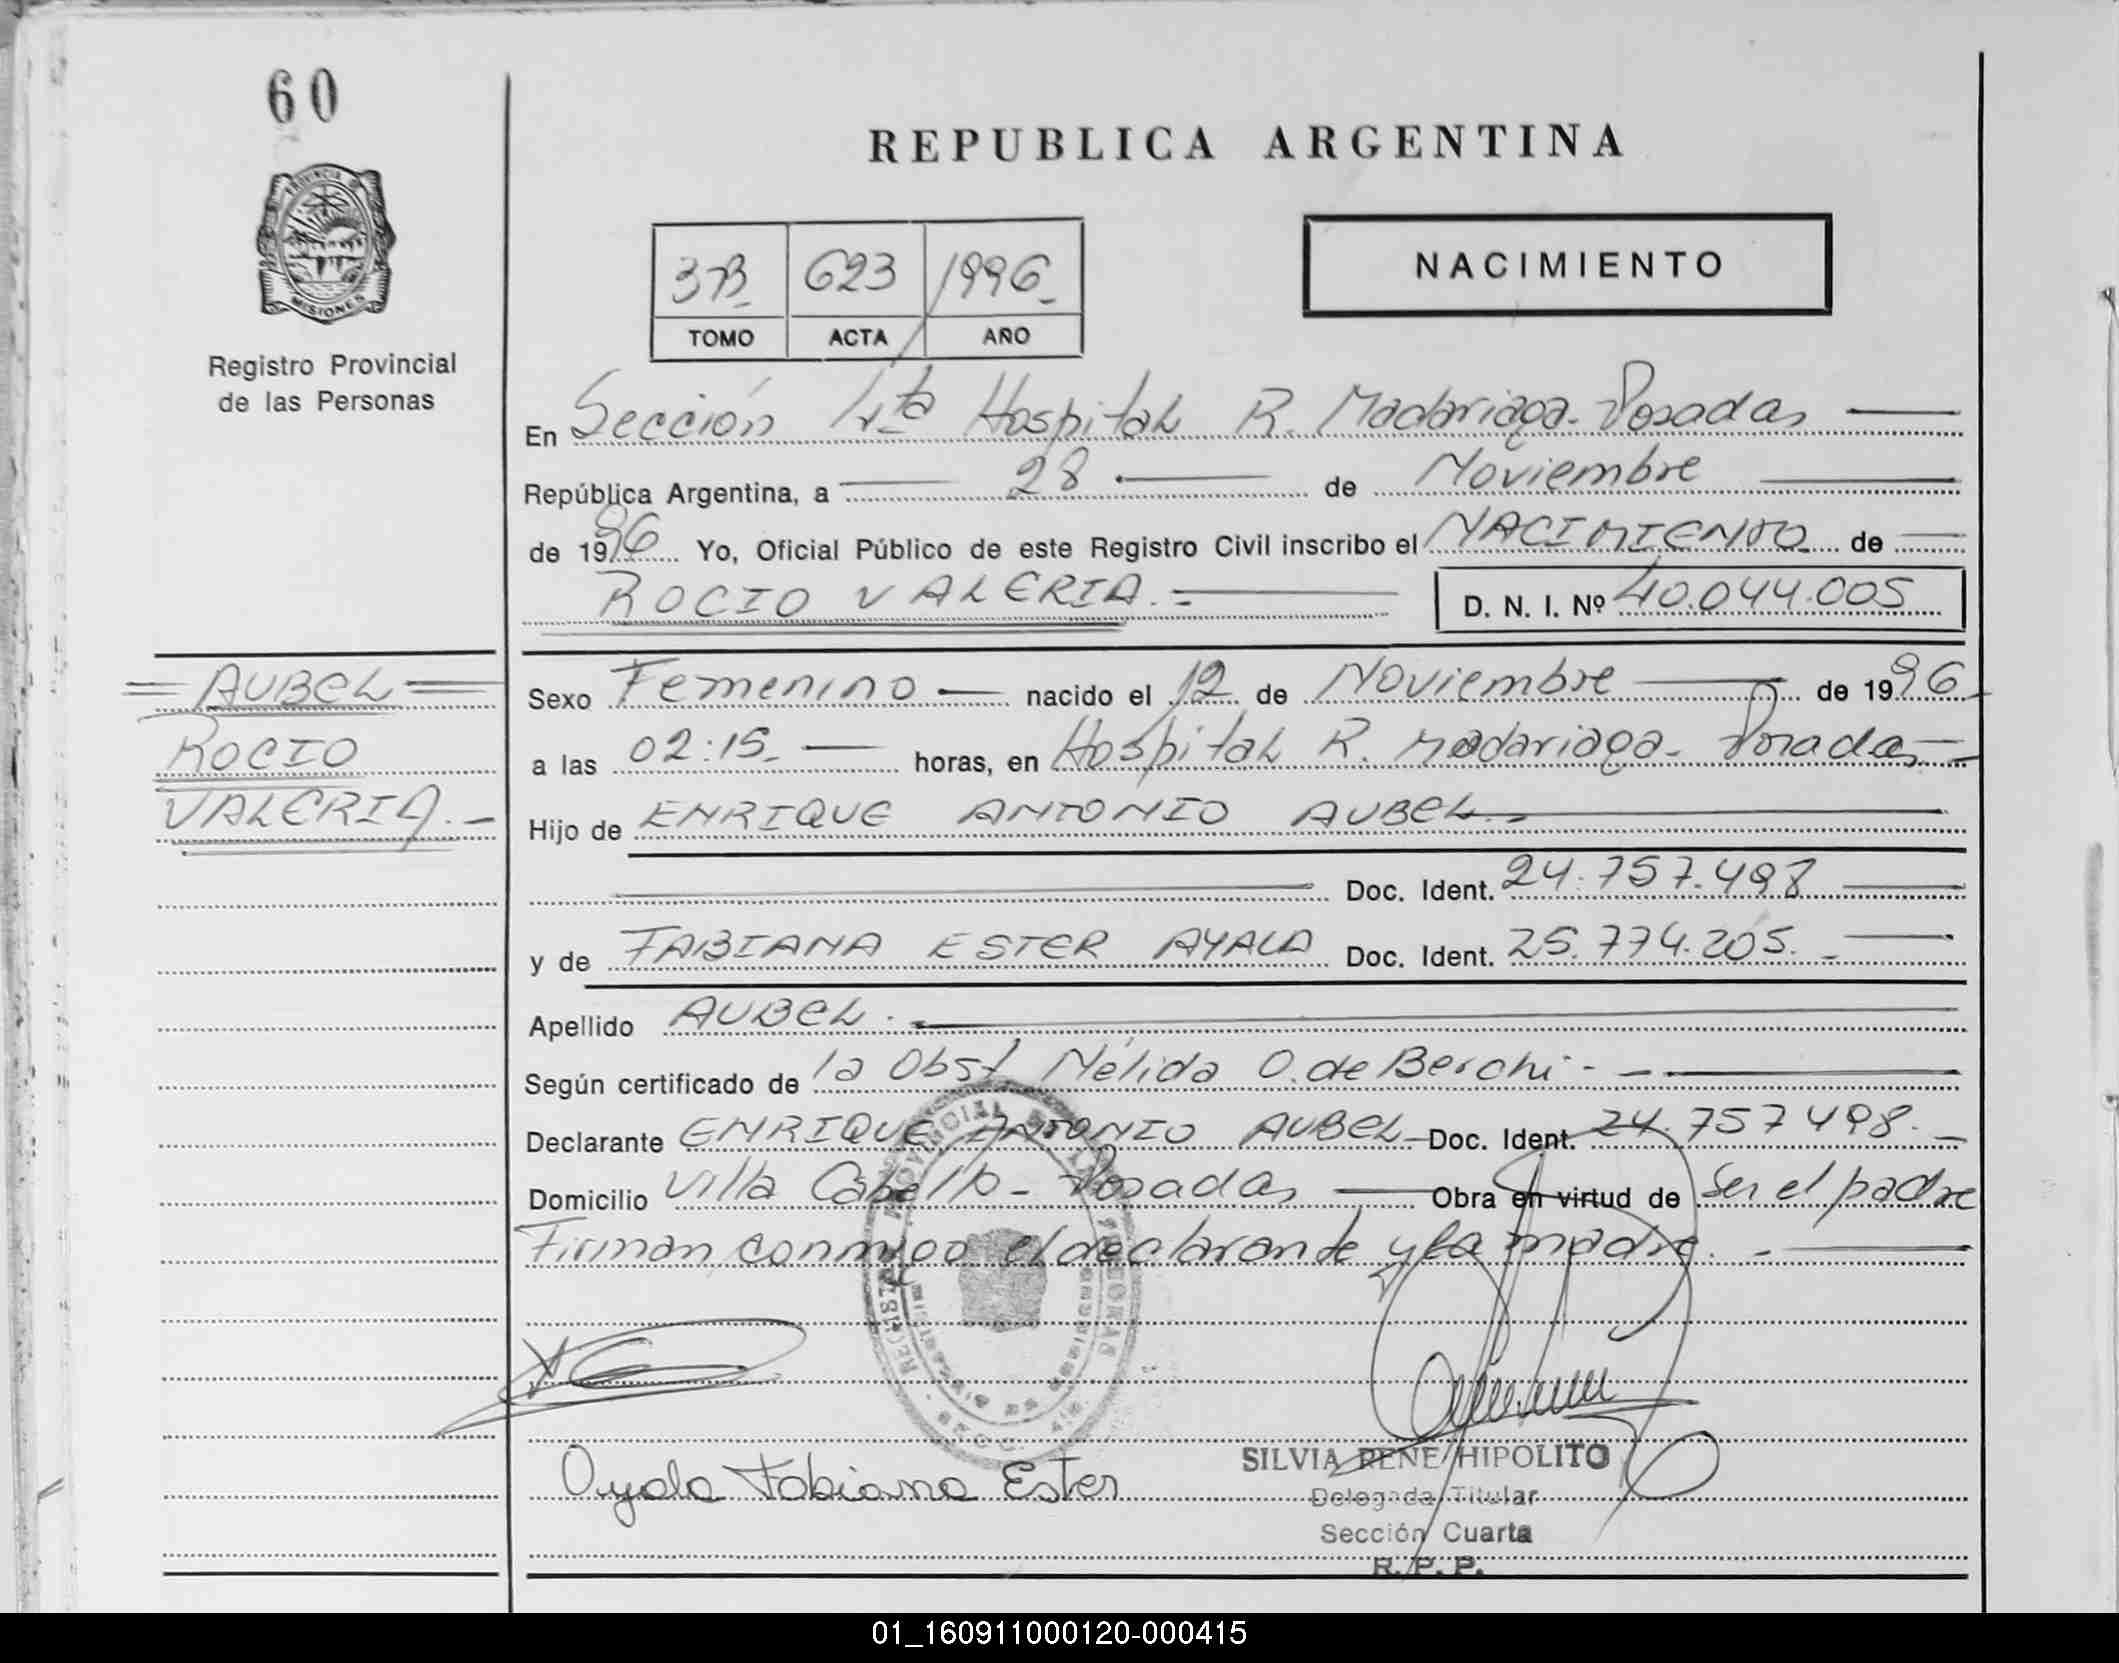 60
REPUBLICA ARGENTINA
PROVINCIA DE
MISIONES
Registro Provincial
de las Personas
3B 623 1996
TOMO ACTA AÑO
NACIMIENTO
En Sección 4ta Hospital R. Madariaga - Posadas
República Argentina, a 28 de Noviembre
de 1996 Yo, Oficial Público de este Registro Civil inscribo el NACIMIENTO de
ROCIO VALERIA.= D. N. I. Nº 40.044.005
AUBEL
ROCIO
VALERIA.-
Sexo Femenino nacido el 12 de Noviembre de 1996
a las 02:15 horas, en Hospital R. Madariaga - Posadas
Hijo de ENRIQUE ANTONIO AUBEL.-
Doc. Ident. 24.757.498
y de FABIANA ESTER AYALA Doc. Ident. 25.774.205.-
Apellido AUBEL.
Según certificado de la Obst Nélida O. de Berchi -
Declarante ENRIQUE ANTONIO AUBEL Doc. Ident. 24.757498.-
Domicilio Villa Cabello - Posadas Obra en virtud de Ser el padre
Firman conmigo el declarante y la madre.-
Ayala Fabiana Ester
SILVIA RENE HIPOLITO
Delegada Titular
Sección Cuarta
R. P. P.
01_160911000120-000415